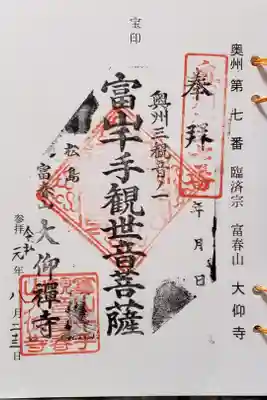 奥州第七番 臨済宗 富春山 大仰寺
奉拝
年月日
奥州三観音ノ一
宝印
富山千手観世音菩薩
松島
富春山
大仰禅寺
参拝 令和元年八月二十三日